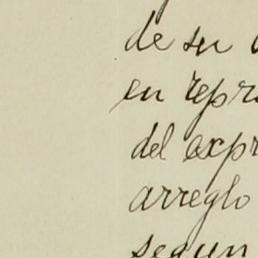 de su
en repr
del expr
arreglo
segun